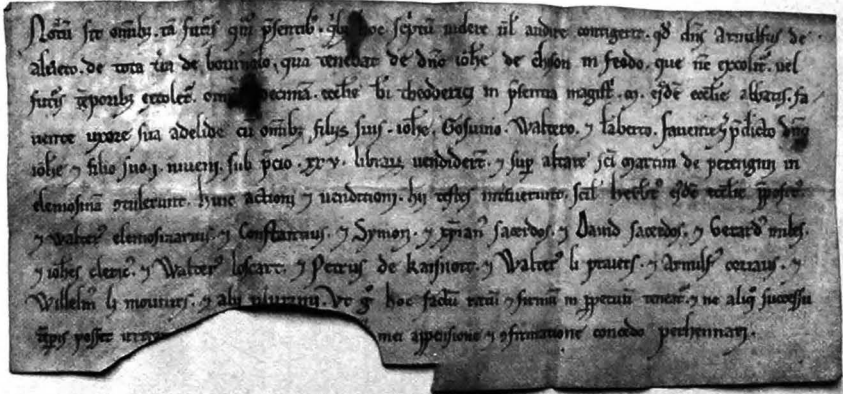 Notū sit omībȝ. tā futuris qͣm p̄sentibȝ. qͥbȝ hoc sc̄ptū uidere uel audire contigerit. qd̄ dn̄s Arnulfus de
de tota t̄ra de quā tenebat de dn̄o ioh̄e de chison in feodo. que nc̄ excolit᷑. uel
futuris tēporibȝ excolet᷑. decimā. eccl̄ie bi̅ theoderici in p̄sentia magist̄. M. eiusdē eccl̄ie abbatis. fa
uente uxore sua adelide cū omībȝ filiis suis. ioh̄e. Gosuino. Waltero. ⁊ lābto. fauente ⁊ p̄dicto dn̄o
ioh̄e ⁊ filio suo. J. iuueni. sub p̄cio. xx. v. librarū uendiderūt. ⁊ sup̄ altare sc̄i martini de in
elemosinā ɔtulerunt. huic actioni ⁊ uenditioni. hii testes int̄fuerunt. scil̄ eiusdē eccl̄ie p̄posit᷒.
⁊ walter᷒ elemosinarius. ⁊ Constantius. ⁊ Symon. ⁊ xp̄ian᷒ sacerdos. ⁊ Dauid sacerdos. ⁊ Gerard᷒ miles.
⁊ ioh̄es cleric᷒. ⁊ Walter᷒ loscart. ⁊ Petrus de kaisnoit. ⁊ Walter᷒ li ⁊ Arnulf᷒ ⁊
Willelm᷒ li ⁊ alii plurimi. Vt gͦ hoc factū ratū ⁊ firmū in p̄petuū teneat᷑. ⁊ ne aliqͣ successu
tēpis posset mei appensione ⁊ ɔfirmatione concedo perhennari.